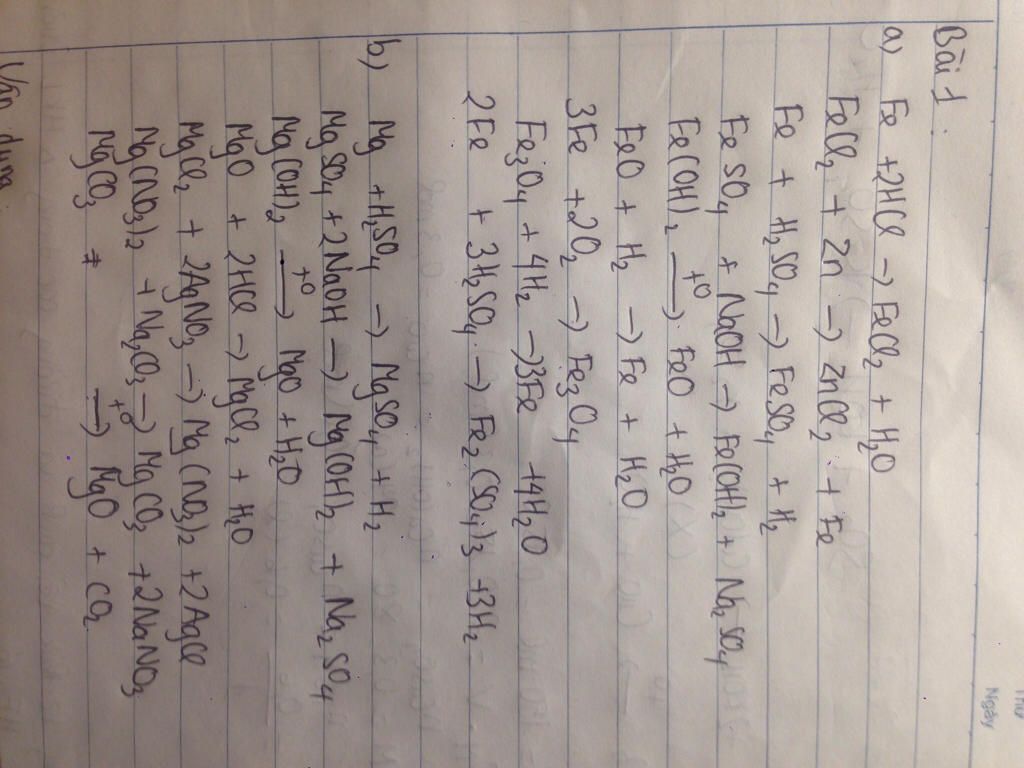 Thứ
Ngày
Bài 1:
a) Fe + 2HCl → FeCl₂ + H₂O
FeCl₂ + Zn → ZnCl₂ + Fe
Fe + H₂SO₄ → FeSO₄ + H₂
FeSO₄ + NaOH → Fe(OH)₂ + Na₂SO₄
Fe(OH)₂ —t°→ FeO + H₂O
FeO + H₂ → Fe + H₂O
3Fe + 2O₂ → Fe₃O₄
Fe₃O₄ + 4H₂ → 3Fe + 4H₂O
2Fe + 3H₂SO₄ → Fe₂(SO₄)₃ + 3H₂
b) Mg + H₂SO₄ → MgSO₄ + H₂
MgSO₄ + 2NaOH → Mg(OH)₂ + Na₂SO₄
Mg(OH)₂ —t°→ MgO + H₂O
MgO + 2HCl → MgCl₂ + H₂O
MgCl₂ + 2AgNO₃ → Mg(NO₃)₂ + 2AgCl
Mg(NO₃)₂ + Na₂CO₃ → MgCO₃ + 2NaNO₃
MgCO₃ —t°→ MgO + CO₂
Vận dụng